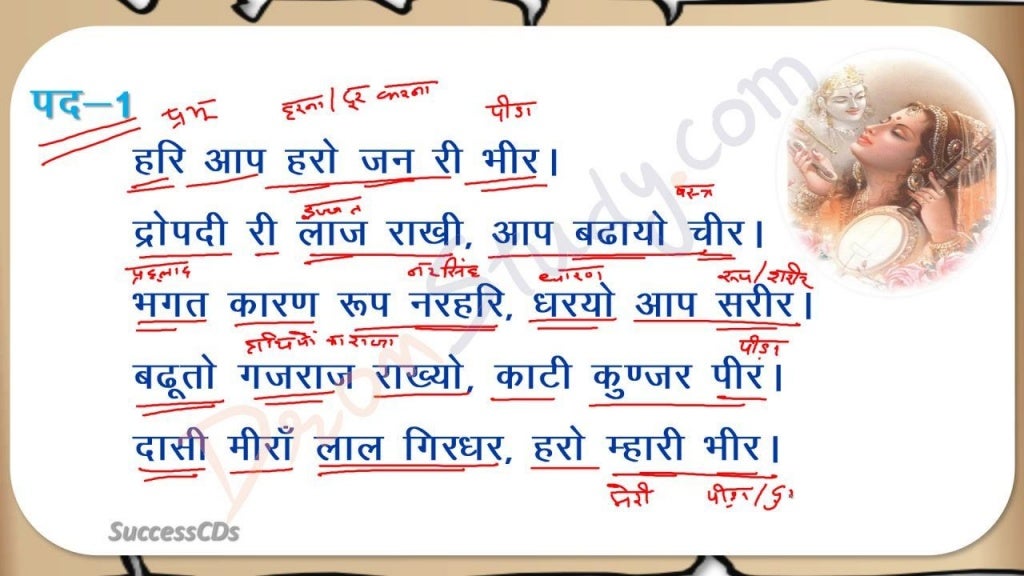 पद–1
प्रभु हरना/दूर करना पीडा
हरि आप हरो जन री भीर।
इज्जत वस्त्र
द्रोपदी री लाज राखी, आप बढायो चीर।
प्रहलाद नरसिंह धारण रूप/शरीर
भगत कारण रूप नरहरि, धरयो आप सरीर।
हाथियों का राजा पीडा
बढूतो गजराज राख्यो, काटी कुण्जर पीरं।
दासी मीराँ लाल गिरधर, हरो म्हारी भीर।
मेरी पीडा/
SuccessCDs
DronStudy.com